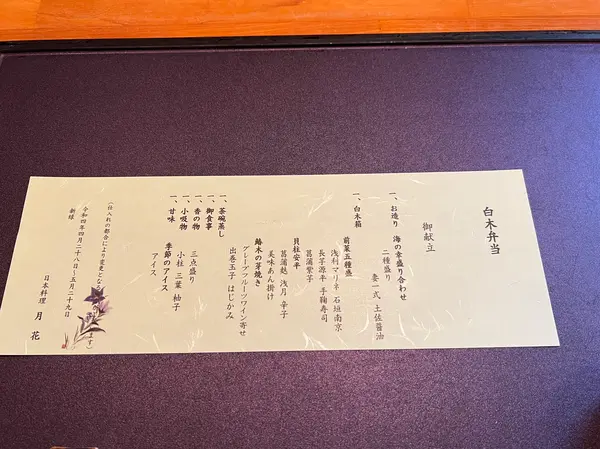 白木弁当
御献立
一、お造り 海の幸盛り合わせ
二種盛り 妻一式 土佐醤油
一、白木箱
前菜五種盛
浅利マリネ 石垣南京
長芋源平 手鞠寿司
菖蒲紫芋
貝柱安平
菖蒲麩 浅月 辛子
美味あん掛け
鰆木の芽焼き
グレープフルーツワイン寄せ
出巻玉子 はじかみ
一、茶碗蒸し
一、御食事
一、香の物 三点盛り
一、小吸物 小柱 三葉 柚子
一、甘味 季節のアイス
アイス
(仕入れの都合により変更となる
ます)
令和四年四月二十八日~五月二十九日
新緑
日本料理 月花